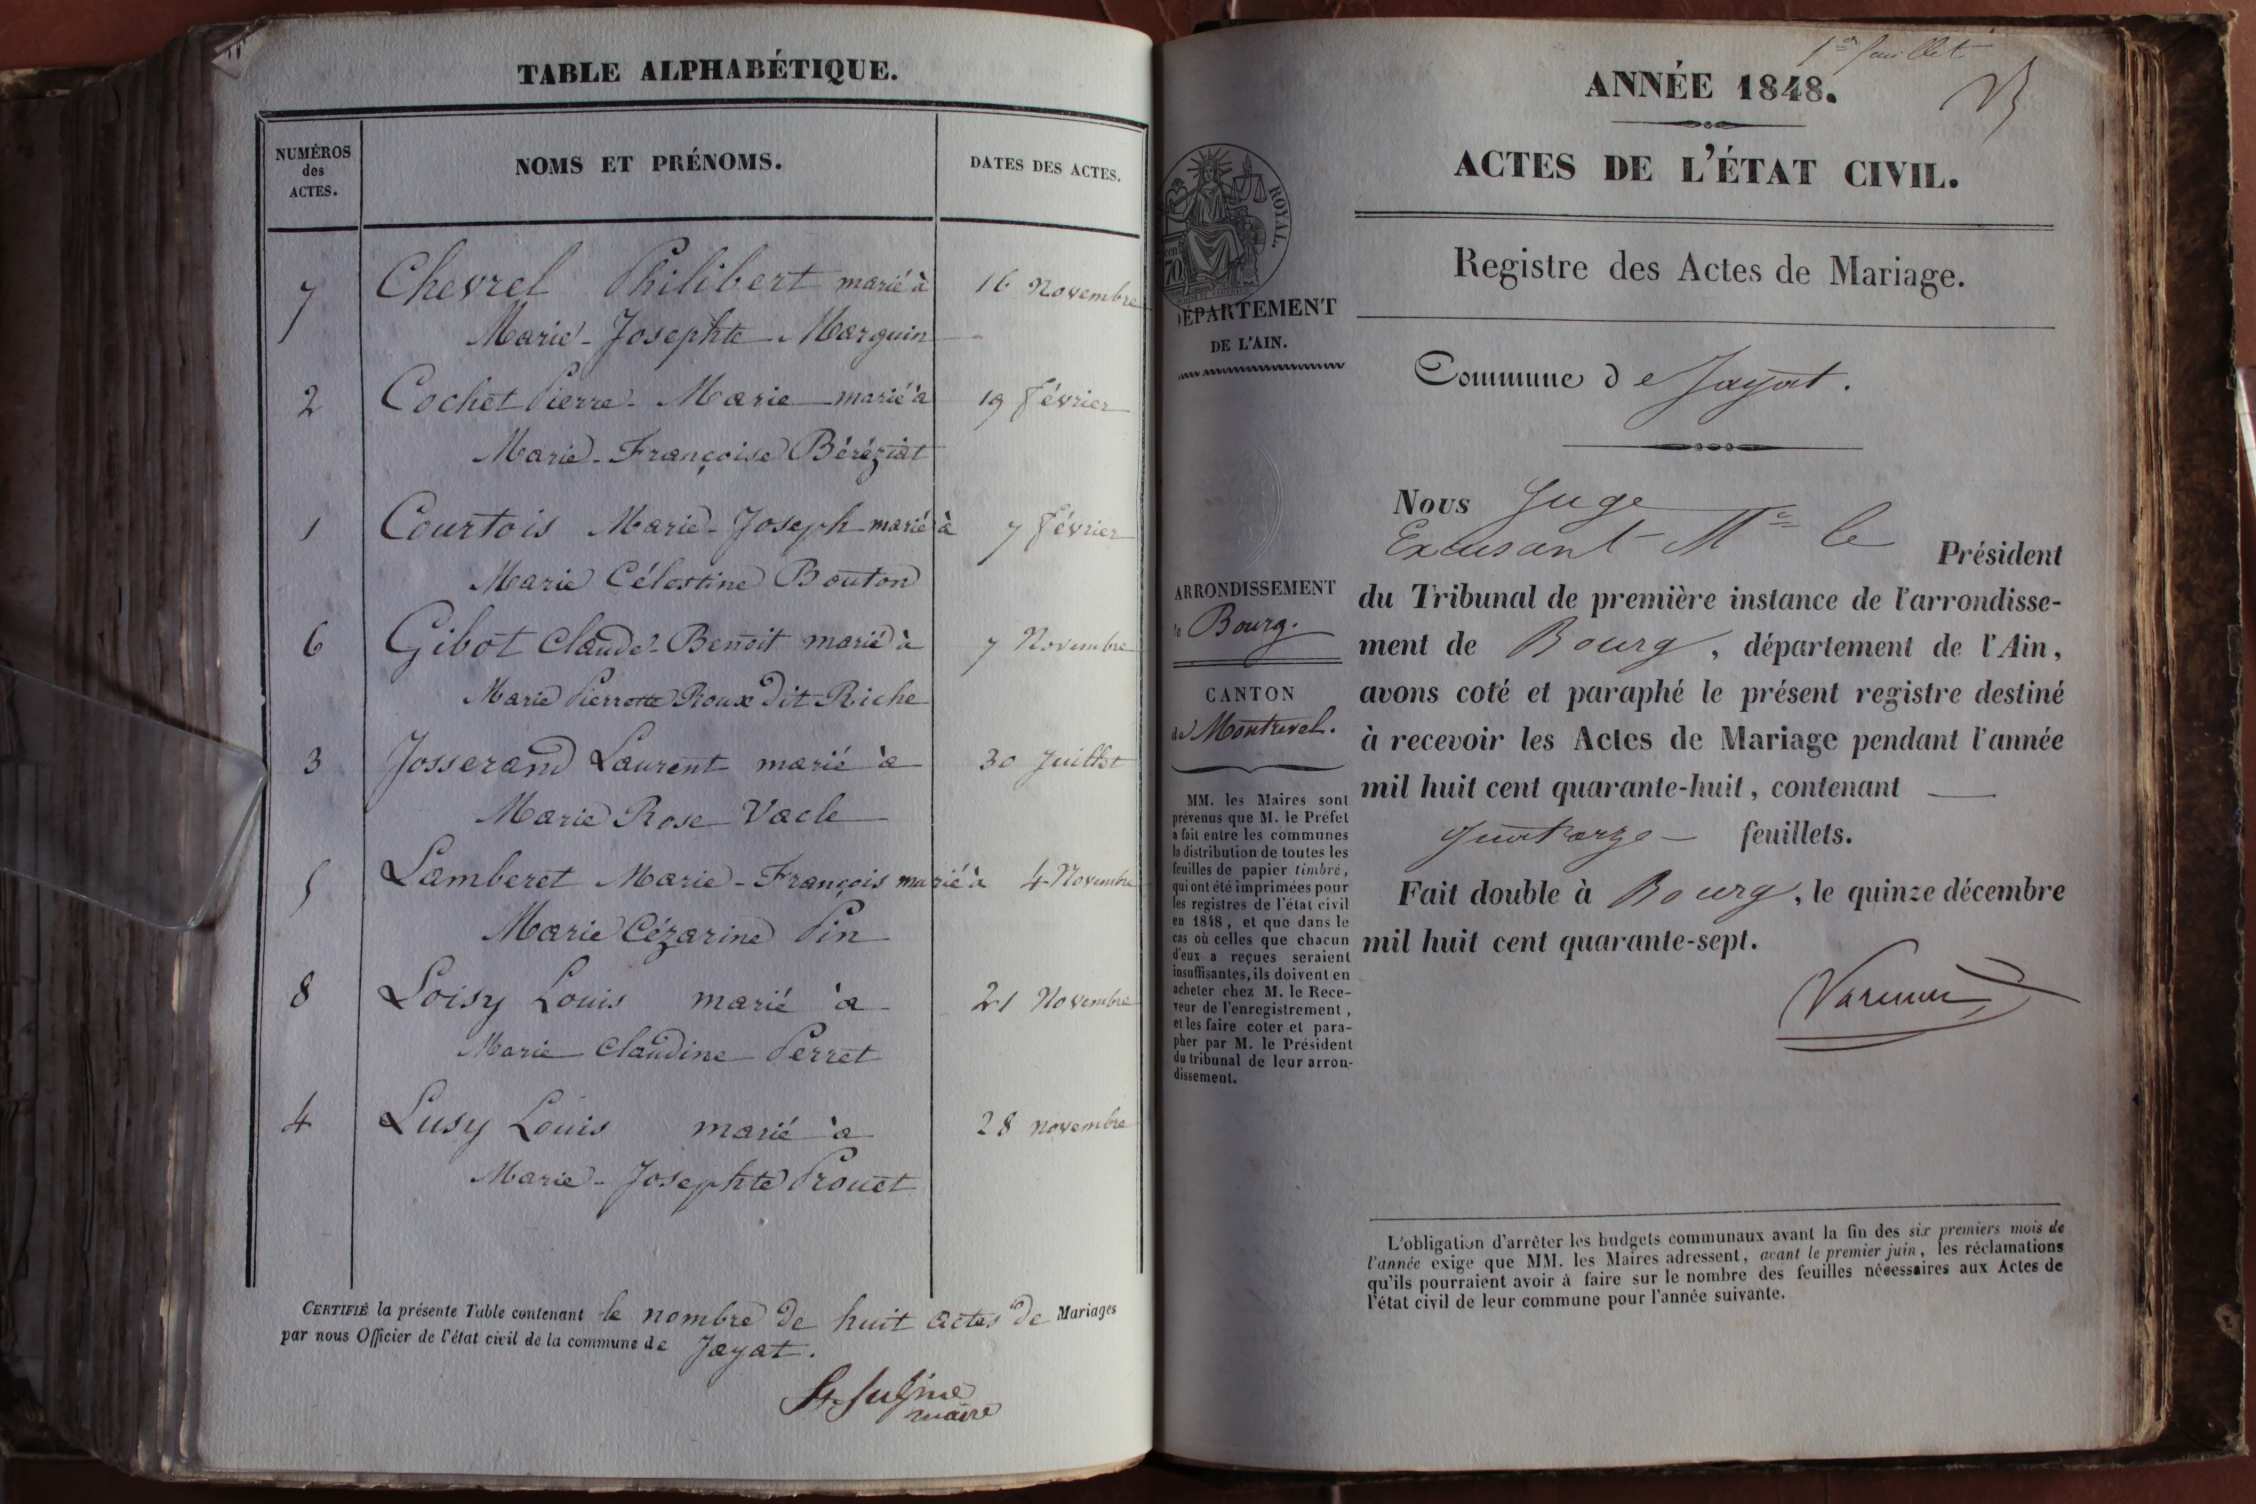 TABLE ALPHABÉTIQUE.
NUMÉROS
des
ACTES.
NOMS ET PRÉNOMS.
DATES DES ACTES.
7 Chevrel Philibert marié à 16 Novembre
Marie-Josephte Marguin
2 Cochet Pierre-Marie marié à 19 février
Marie-Françoise Béréziat
1 Courtois Marie-Joseph marié à 7 février
Marie Célestine Bouton
6 Gibot Claude-Benoit marié à 7 Novembre
Marie Pierrotte Roux dit Riche
3 Josserand Laurent marié à 30 Juillet
Marie Rose Vacle
5 Lamberet Marie-François marié à 4 Novembre
Marie Cézarine Pin
8 Loisy Louis marié à 21 Novembre
Marie Claudine Perret
4 Lusy Louis marié à 28 novembre
Marie-Josephte Prouet
CERTIFIÉ la présente Table contenant le nombre de huit actes de Mariages
par nous Officier de l'état civil de la commune de Jayat.
maire
1er feuillet
ANNÉE 1848.
ACTES DE L'ÉTAT CIVIL.
Registre des Actes de Mariage.
ROYAL.
70
DÉPARTEMENT
DE L'AIN.
Commune de Jayat.
Nous Juge
Excusant Mr le Président
du Tribunal de première instance de l'arrondisse-
ment de Bourg, département de l'Ain,
avons coté et paraphé le présent registre destiné
à recevoir les Actes de Mariage pendant l'année
mil huit cent quarante-huit, contenant
quatorze feuillets.
Fait double à Bourg, le quinze décembre
mil huit cent quarante-sept.
ARRONDISSEMENT
de Bourg.
CANTON
de Montrevel.
MM. les Maires sont
prévenus que M. le Préfet
a fait entre les communes
la distribution de toutes les
feuilles de papier timbré,
qui ont été imprimées pour
les registres de l'état civil
en 1848, et que dans le
cas où celles que chacun
d'eux a reçues seraient
insuffisantes, ils doivent en
acheter chez M. le Rece-
veur de l'enregistrement,
et les faire coter et para-
pher par M. le Président
du tribunal de leur arron-
dissement.
L'obligation d'arrêter les budgets communaux avant la fin des six premiers mois de
l'année exige que MM. les Maires adressent, avant le premier juin, les réclamations
qu'ils pourraient avoir à faire sur le nombre des feuilles nécessaires aux Actes de
l'état civil de leur commune pour l'année suivante.